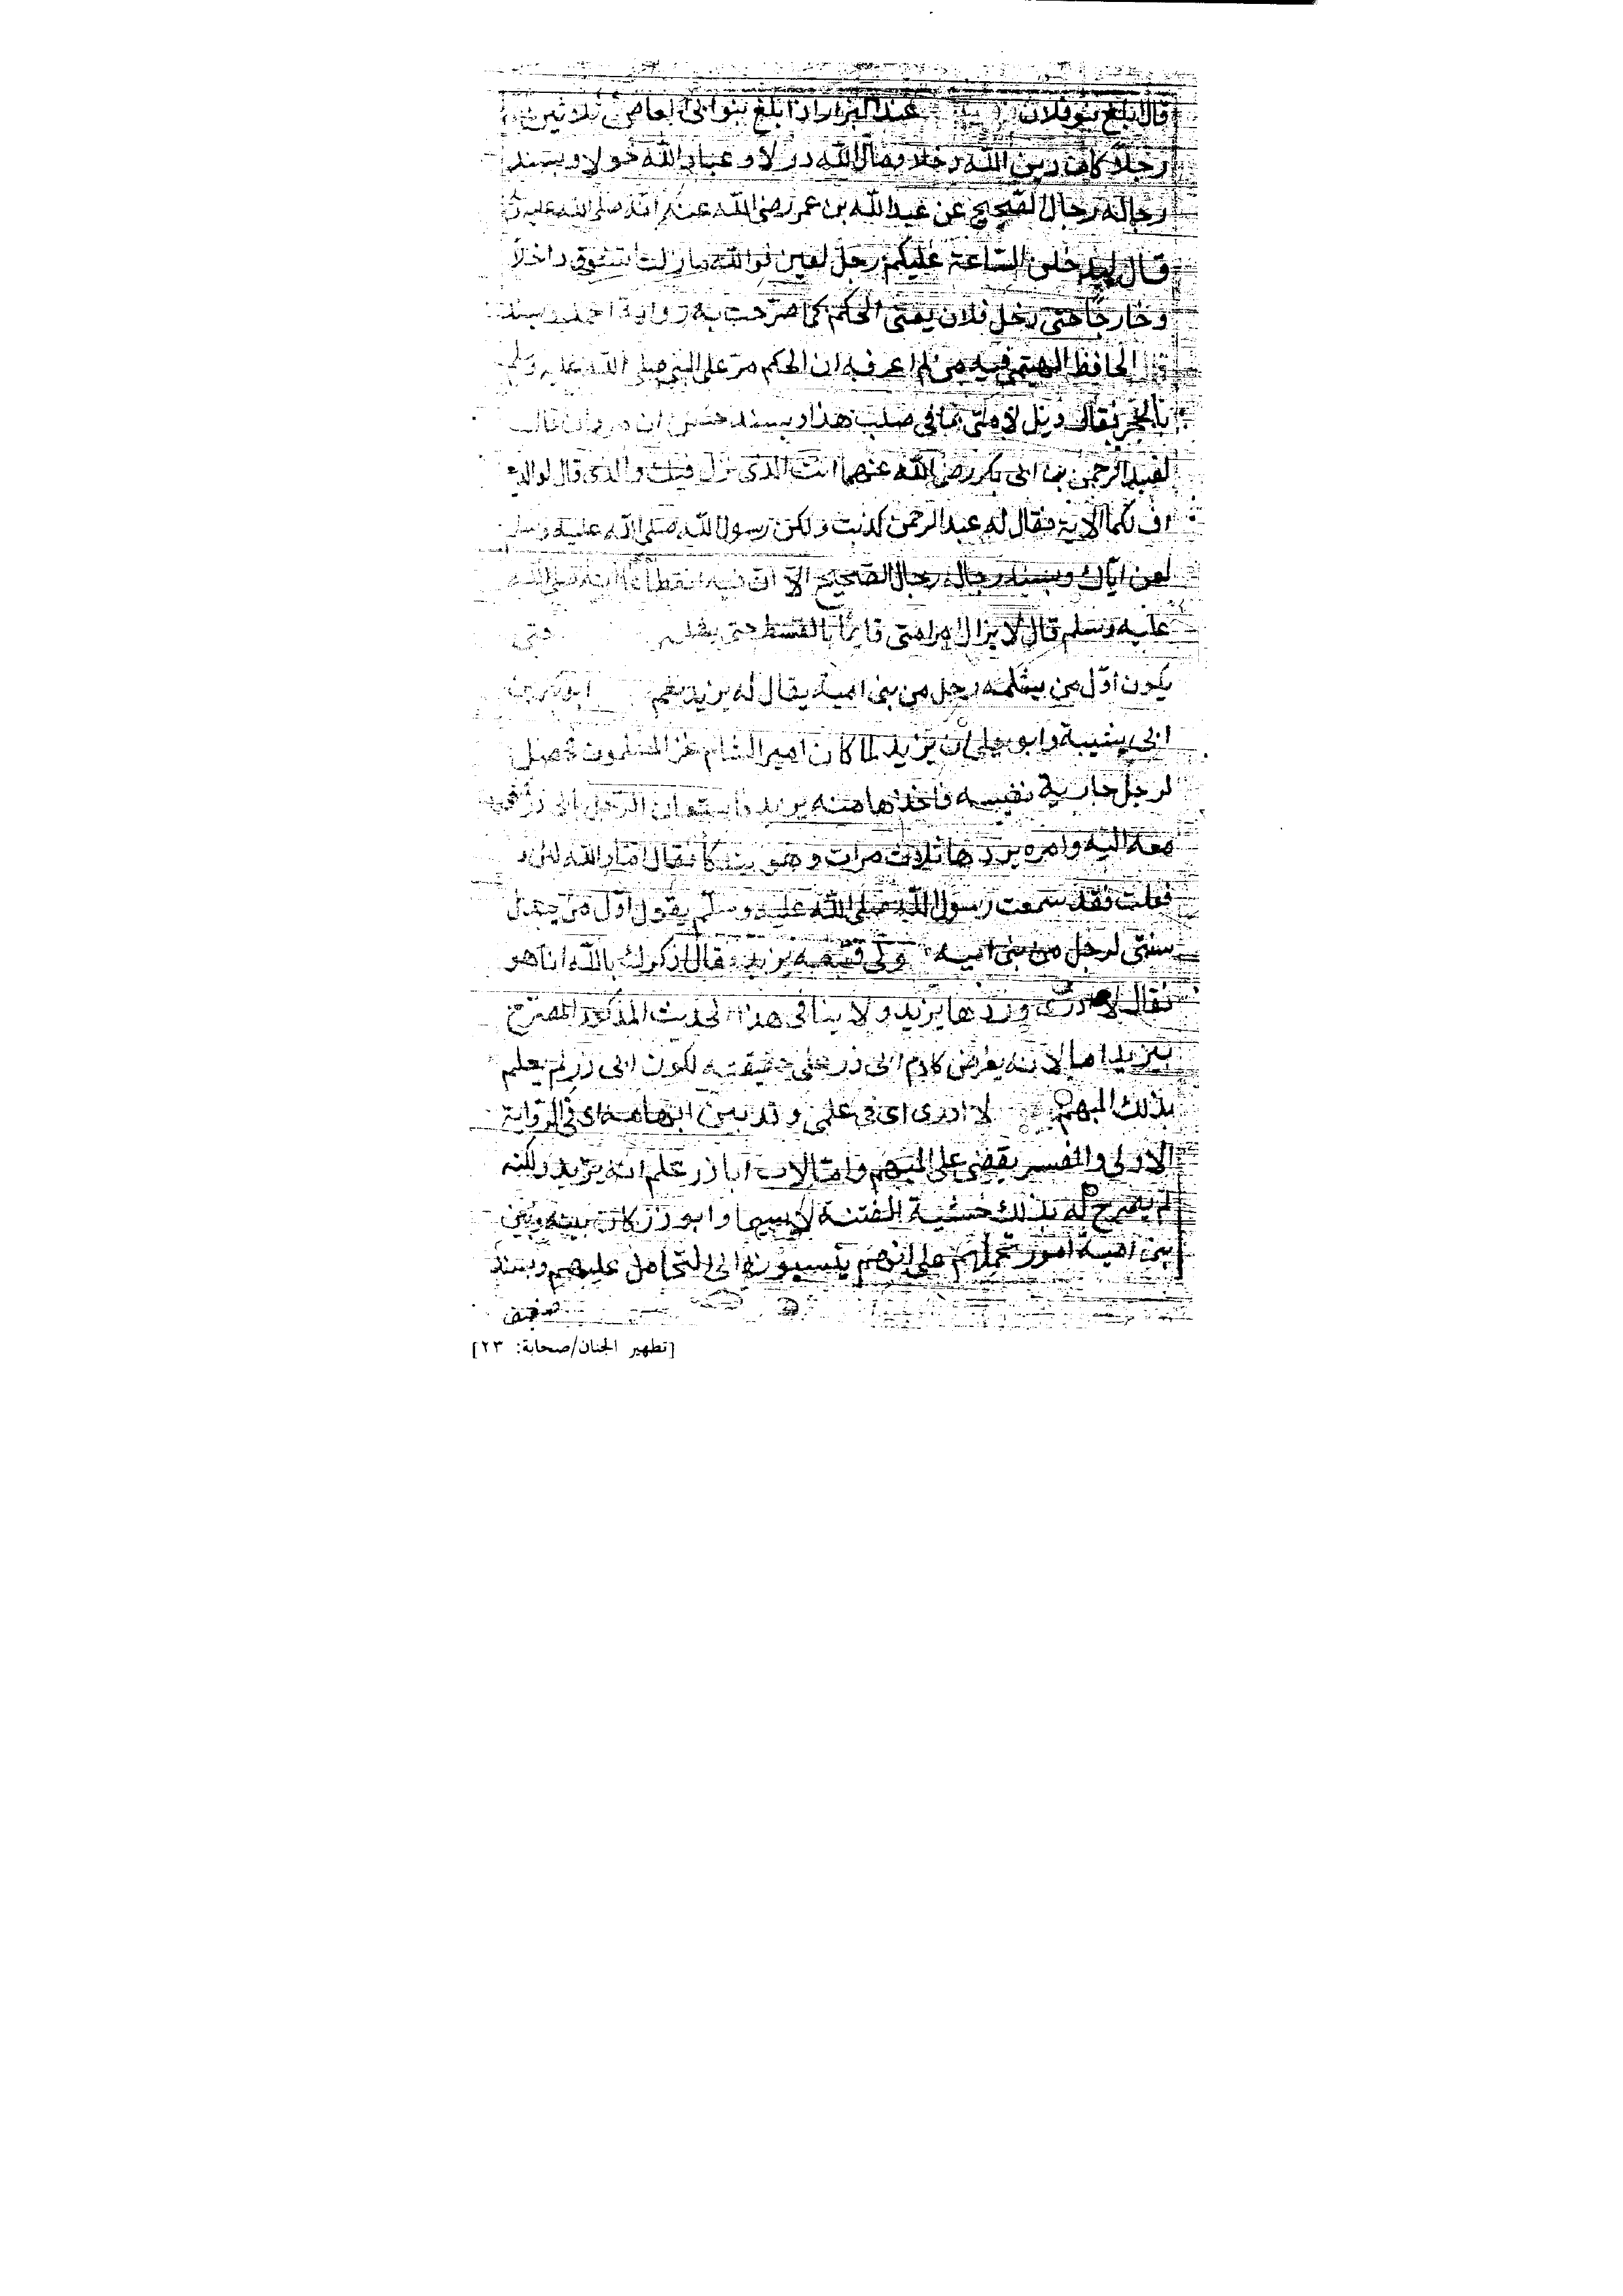 قال اذا بلغ بنو فلان عند البزار اذا بلغ بنو ابى العاص ثلاثين
رجلاً كان دين الله دخلا ومال الله دولا وعباد الله خولا وبسند
رجاله رجال الصحيح عن عبد الله بن عمر رضى الله عنه انه صلى الله عليه
قال ليدخلن الساعة عليكم رجل لعين فوالله مازلت اتشوق داخلاً
وخارجًا حتى دخل فلان يعنى الحكم كما صرحت به رواية احمد وبسند
قال الحافظ الهيتمى فيه من لم اعرفه ان الحكم مر على النبى صلى الله عليه وسلم
بالحجر فقال ويل لامتى مما فى صلب هذا وبسند حسن ان مروان قال
لعبد الرحمن بن ابى بكر رضى الله عنهما انت الذى نزل فيك والذى قال لوالديه
اف لكما الاية فقال له عبد الرحمن كذبت ولكن رسول الله صلى الله عليه وسلم
لعن اباك وبسند رجاله رجال الصحيح الا ان فيه انقطاعا انه صلى الله
عليه وسلم قال لا يزال امر امتى قايمًا بالقسط حتى حتى
يكون اول من يثلمه رجل من بنى امية يقال له يزيد نعم ابو بكر بن
ابى شيبة وابو يعلى ان يزيد لما كان امير الشام غزا المسلمون فحصل
لرجل جارية نفيسه فاخذها منه يزيد فاستعان الرجل بابى ذر فمشى
معه اليه وامره بردها ثلاث مرات وهو يتلكأ فقال اما والله لئن
فعلت فقد سمعت رسول الله صلى الله عليه وسلم يقول اول من يبدل
سنتى لرجل من بنى امية ولى فتبعه يزيد فقال اذكرك بالله انا هو
فقال لا ادرى وردها يزيد ولا ينافى هذا الحديث المذكور المصرح
بيزيد اما لانه يفرض كلام ابى ذر على حقيقته لكون ابى ذر لم يعلم
بذلك المبهم لا ادرى اى فى علمى وقد بين ابهامه اى فى الرواية
الاولى والمفسر يقضى على المبهم واما لان ابا ذر علم انه يزيد ولكنه
لم يصرح له بذلك خشية الفتنة لا سيما وابو ذر كان بينه وبين
بنى امية امور تحملهم على انهم ينسبونه الى التحامل عليهم وبسند
ضعيف
[تطهير الجنان/صحابة: ٢٣]